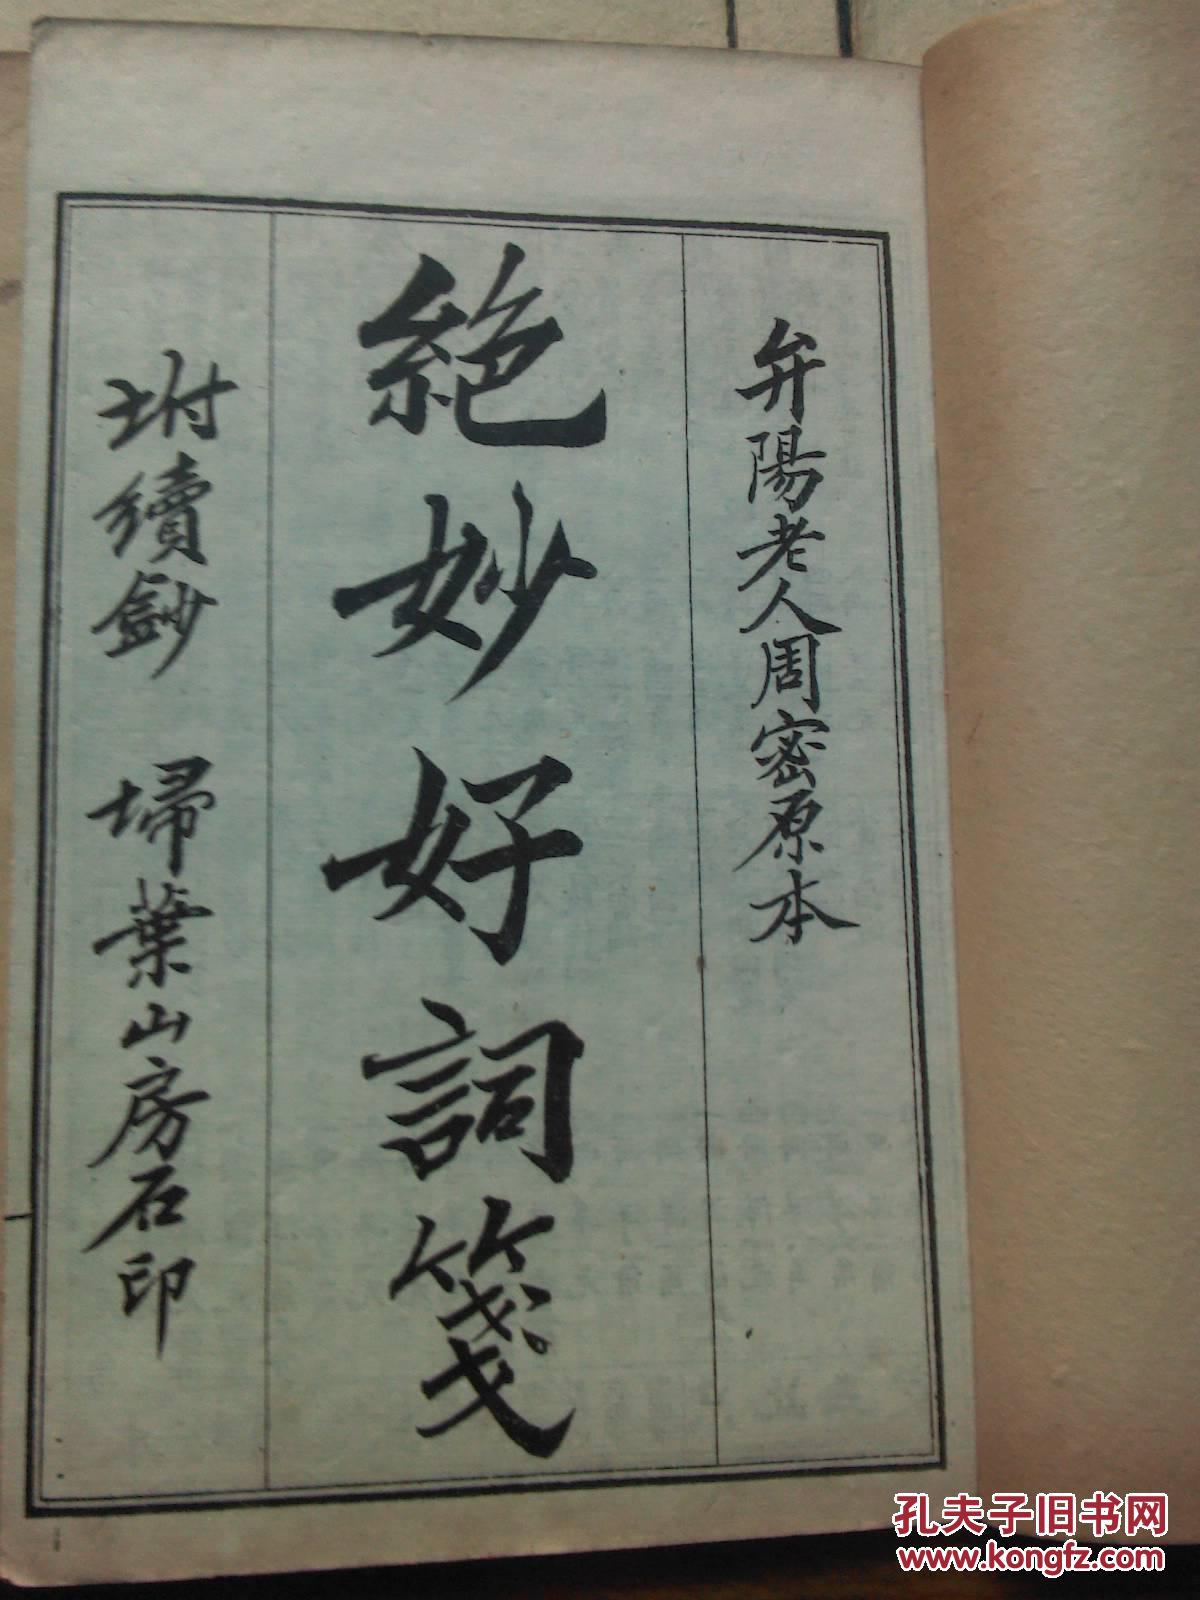 弁陽老人周密原本
絶妙好詞箋
坿續鈔　埽葉山房石印
孔夫子旧书网
www.kongfz.com